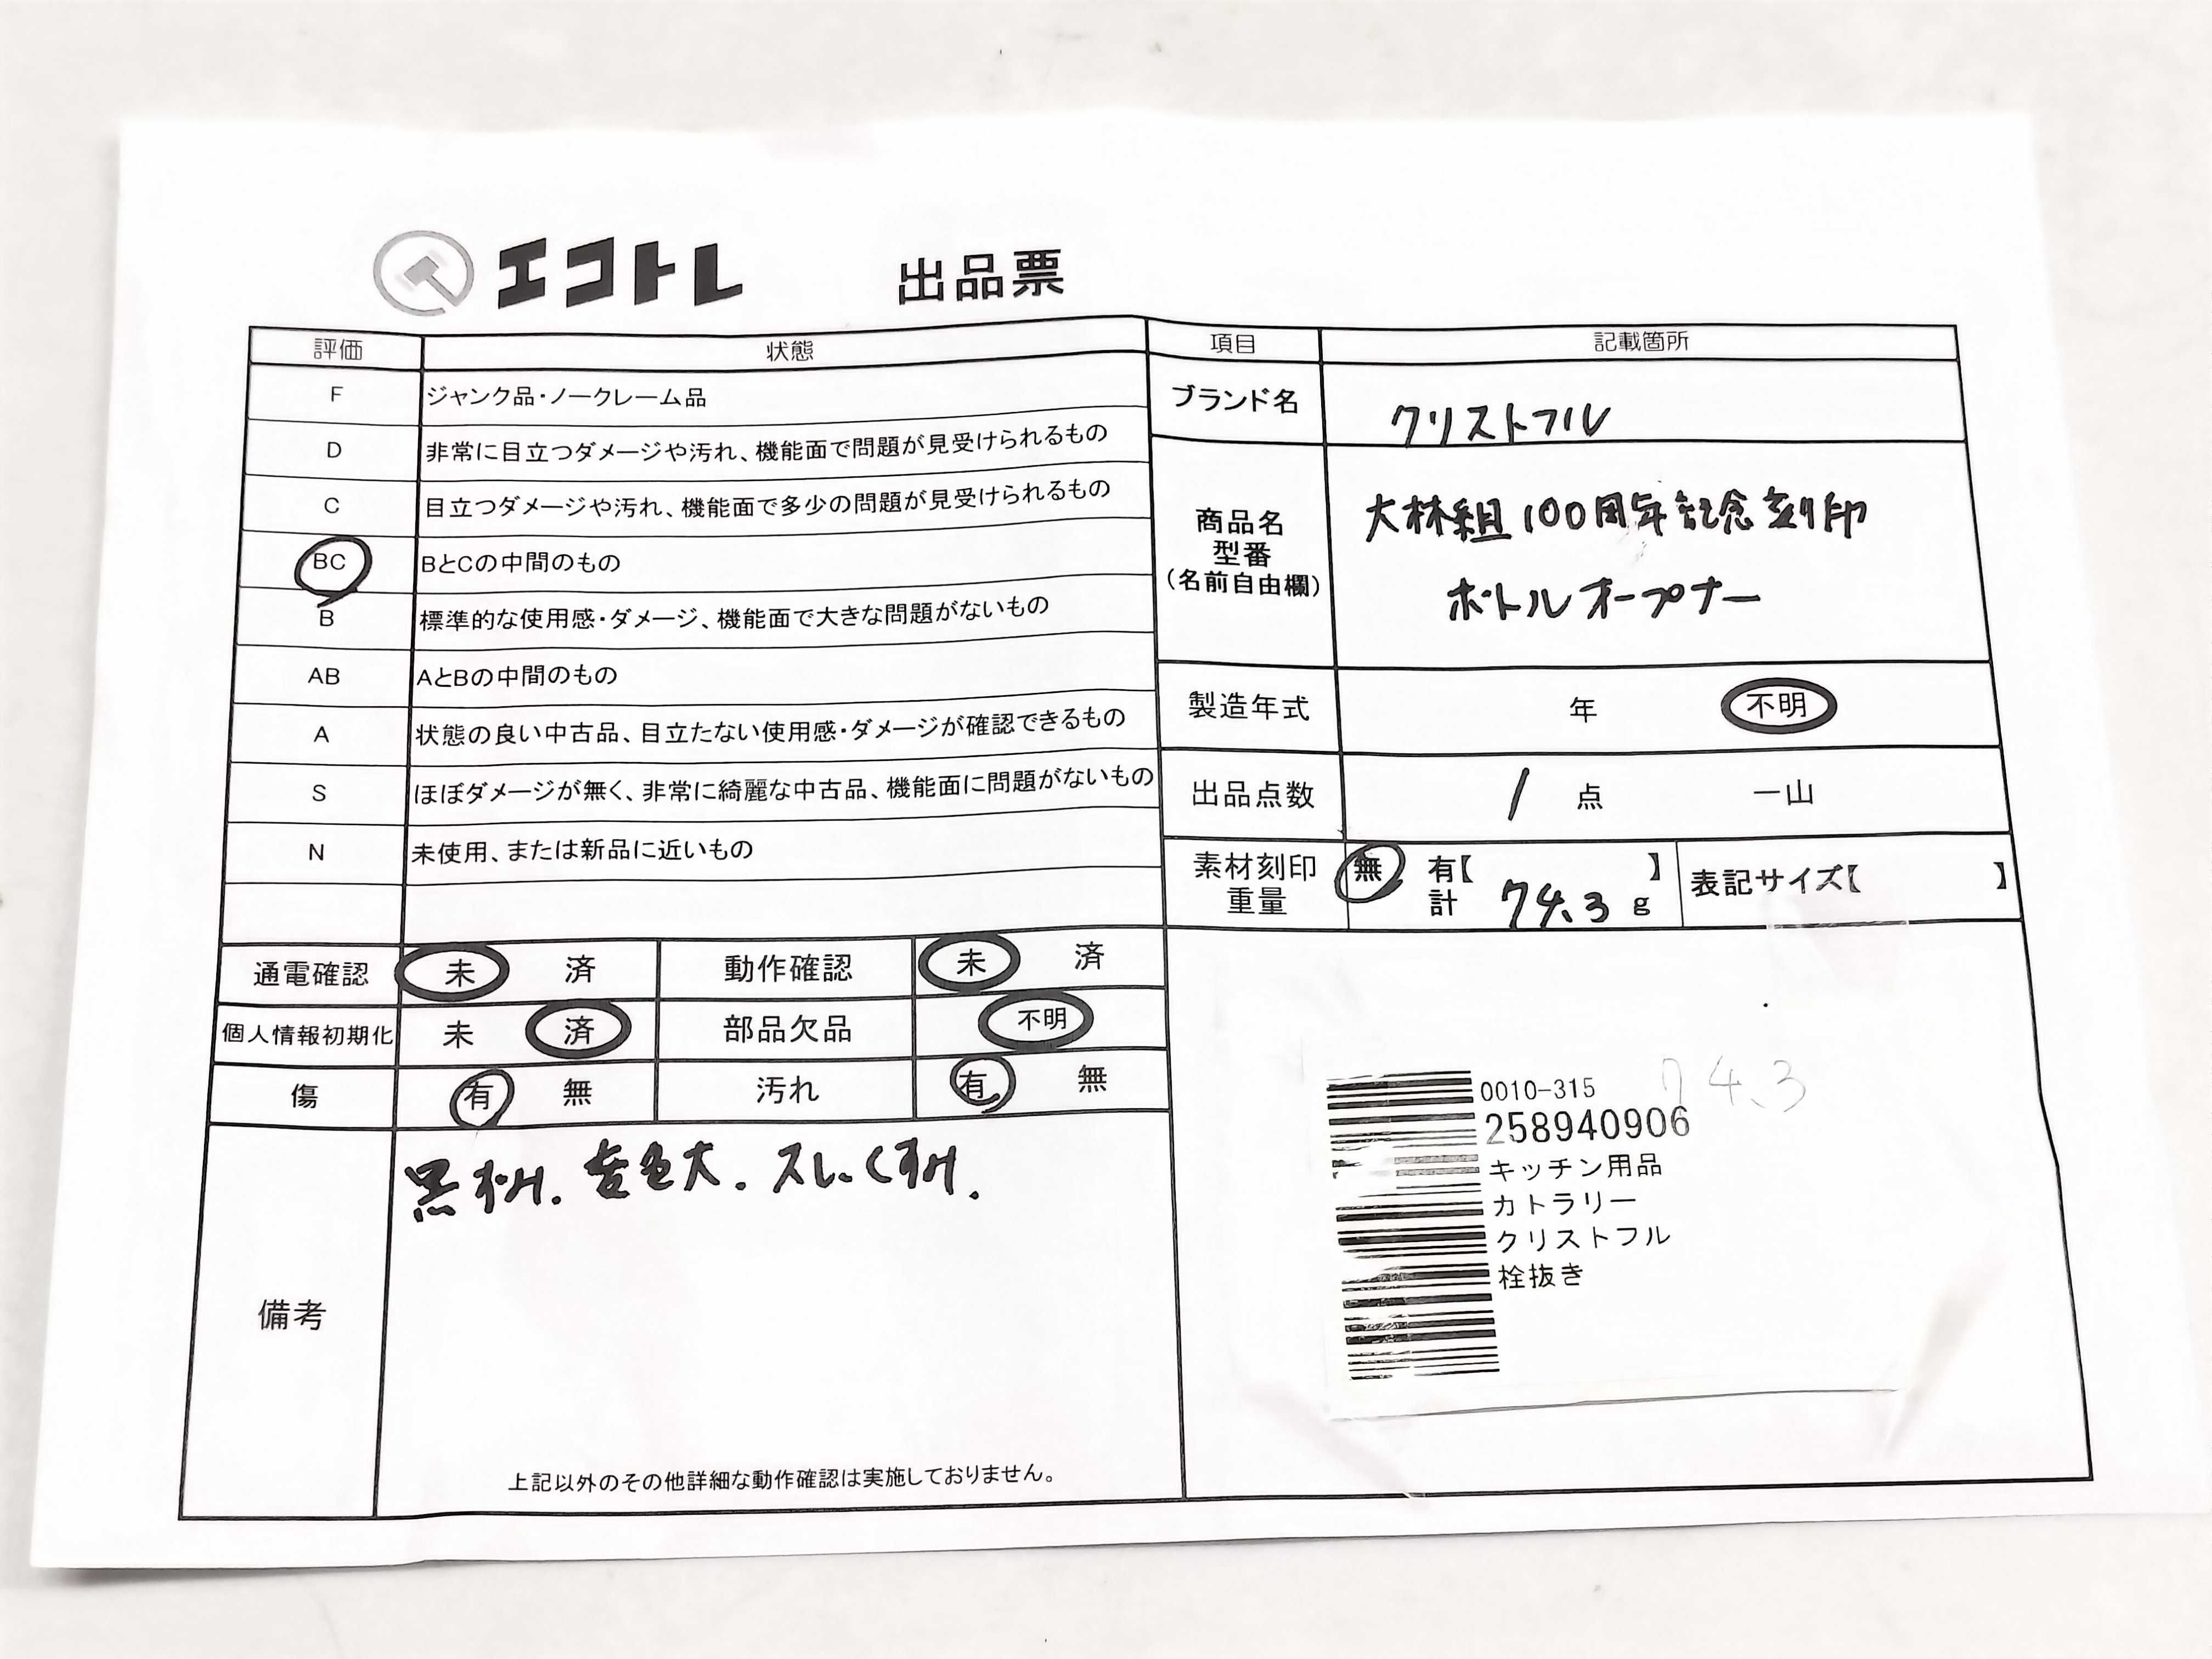 エコトレ 出品票
評価 状態
F ジャンク品・ノークレーム品
D 非常に目立つダメージや汚れ、機能面で問題が見受けられるもの
C 目立つダメージや汚れ、機能面で多少の問題が見受けられるもの
BC BとCの中間のもの
B 標準的な使用感・ダメージ、機能面で大きな問題がないもの
AB AとBの中間のもの
A 状態の良い中古品、目立たない使用感・ダメージが確認できるもの
S ほぼダメージが無く、非常に綺麗な中古品、機能面に問題がないもの
N 未使用、または新品に近いもの
通電確認 未 済 動作確認 未 済
個人情報初期化 未 済 部品欠品 不明
傷 有 無 汚れ 有 無
備考
上記以外のその他詳細な動作確認は実施しておりません。
項目 記載箇所
ブランド名 クリストフル
商品名
型番
(名前自由欄)
大林組100周年記念刻印
ボトルオープナー
製造年式 年 不明
出品点数 1 点 一山
素材刻印 無 有【 】 表記サイズ【 】
重量 計 74.3 g
0010-315 74.3
258940906
キッチン用品
カトラリー
クリストフル
栓抜き